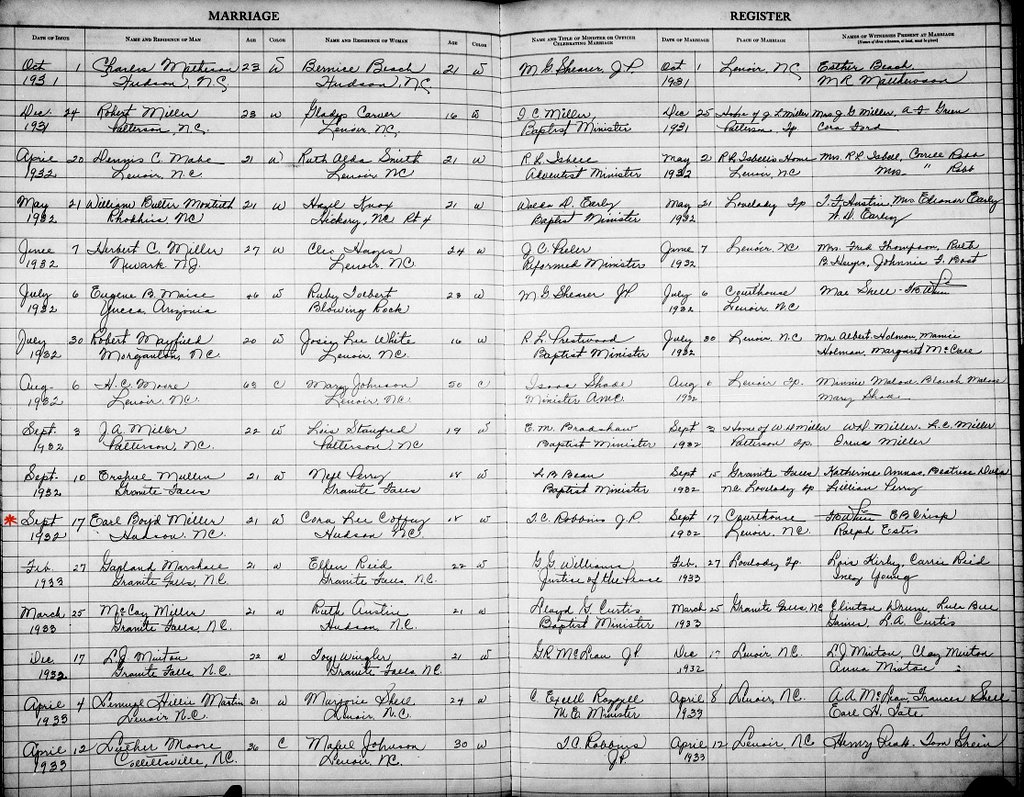 MARRIAGE REGISTER
DATE OF ISSUE NAME AND RESIDENCE OF MAN AGE COLOR NAME AND RESIDENCE OF WOMAN AGE COLOR NAME AND TITLE OF MINISTER OR OFFICER CELEBRATING MARRIAGE DATE OF MARRIAGE PLACE OF MARRIAGE NAMES OF WITNESSES PRESENT AT MARRIAGE
Oct 1 Charles Matheson 23 W Bernice Beach 21 W M G Shearer, J.P. Oct 1 Lenoir, NC Esther Beach
1931 Hudson, NC Hudson, NC 1931 M R
Dec. 24 Robert Miller 23 W Gladys Carver 16 W J C Miller, Dec 25 Home of J. L. Miller Mrs J G Miller, A F Green
1931 Patterson, N.C. Lenoir, NC, Baptist Minister 1931 Patterson Tp Cora Ford
April 20 Dennis C. 21 W Ruth Alda Smith 21 W R L Isbell May 2 R L Isbell's Home Mrs. R L Isbell, Robb
1932 Lenoir, N.C Lenoir NC Adventist Minister 1932 Lenoir, NC Mrs. " Robb
May 21 William Butler 21 W Hazel Knox 21 W D. Early May 21 Lovelady Tp J. F. Austin, Mrs Eleanor Early
1932 Rhodhiss NC Hickory, NC Rt 4 Baptist Minister 1932 W. D. Early
June 7 Herbert C. Miller 27 W Cleo Hayes 24 W J. C. Peeler June 7 Lenoir, NC Mrs. Fred Thompson, Ruth
1932 Newark N.J. Lenoir, NC Reformed Minister 1932 B Hayes, Johnnie F. Bost
July 6 Eugene B. 46 W Ruby Tolbert 23 W M G Shearer JP July 6 Courthouse Mae Shell
1932 Arizonia Blowing Rock 1932 Lenoir N.C
July 30 Robert Mayfield 20 W Josey Lee White 16 W R. L. Prestwood July 30 Lenoir, N.C Mr Albert Holman, Mamie
1932 Morganton, NC. Lenoir, NC. Baptist Minister 1932 Holman, Margaret McCall
Aug. 6 H. C. Moore 63 C Mary Johnson 50 C Isaac Shade Aug 6 Lenoir Tp. Minnie
1932 Lenoir, NC. Lenoir, NC. Minister AME 1932 Mary Shade
Sept. 3 J. A. Miller 22 W Lois 19 W E. M. Bradshaw Sept 3 Home of W H Miller W. D. Miller, L. C. Miller
1932 Patterson, NC. Patterson, NC Baptist Minister 1932 Patterson Tp. Irene Miller
Sept. 10 Mullin 21 W Nell Perry 18 W L B Bean Sept 15 Granite Falls Katherine Beatrice
1932 Granite Falls Granite Falls Baptist Minister 1932 NC Lovelady Tp Lillian Perry
Sept 17 Earl Boyd Miller 21 W Cora Lee Coffey 18 W T. C. Robbins J.P. Sept 17 Courthouse C B Crisp
1932 Hudson, NC. Hudson NC. 1932 Lenoir, NC. Ralph Estes
Feb. 27 Garland Marshall 21 W Ellen Reid 22 W G. G. Williams Feb. 27 Lovelady Tp. Lois Kirby, Carrie Reid
1933 Granite Falls, N.C. Granite Falls, N.C. Justice of the Peace 1933 Inez Young
March 25 McCoy Miller 21 W Ruth Austin 21 W Lloyd G. Curtis March 25 Granite Falls, NC Clinton Drum, Lula Bell
1933 Granite Falls, N.C. Hudson, N.C. Baptist Minister 1933 L.A. Curtis
Dec 17 L.J. Minton 22 W Winkler 21 W G R McLean JP Dec 17 Lenoir, N.C. L J Minton, Clay Minton
1932 Granite Falls, N.C. Granite Falls, NC. 1932 Anna Minton
April 4 Martin 31 W Marjorie Shell 24 W C. Excell Rozzell April 8 Lenoir, NC. A. A. McLean, Frances Shell
1933 Lenoir N.C. Lenoir, N.C. M.E. Minister 1933 Earl H. Tate
April 12 Luther Moore 36 C Johnson 30 W T C Robbins April 12 Lenoir, NC Henry
1933 Collettsville, NC. Lenoir, NC. JP 1933